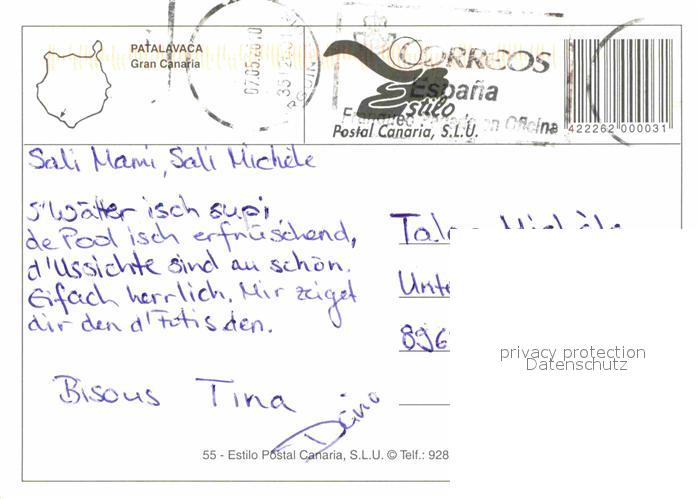 PATALAVACA
Gran Canaria
07.05.2010
CORREOS
España
Estilo
Franqueo Pagado en Oficina
Postal Canaria, S.L.U.
422262 000031
Sali Mami, Sali Michèle
s'Wätter isch supi,
de Pool isch erfrüschend,
d'Ussichte sind au schön.
Eifach herrlich. Mir zeiget
dir den d'Fötis den.
Bisous Tina
Dino
Michèle
Unte
896
privacy protection
Datenschutz
55 - Estilo Postal Canaria, S.L.U. © Telf.: 928